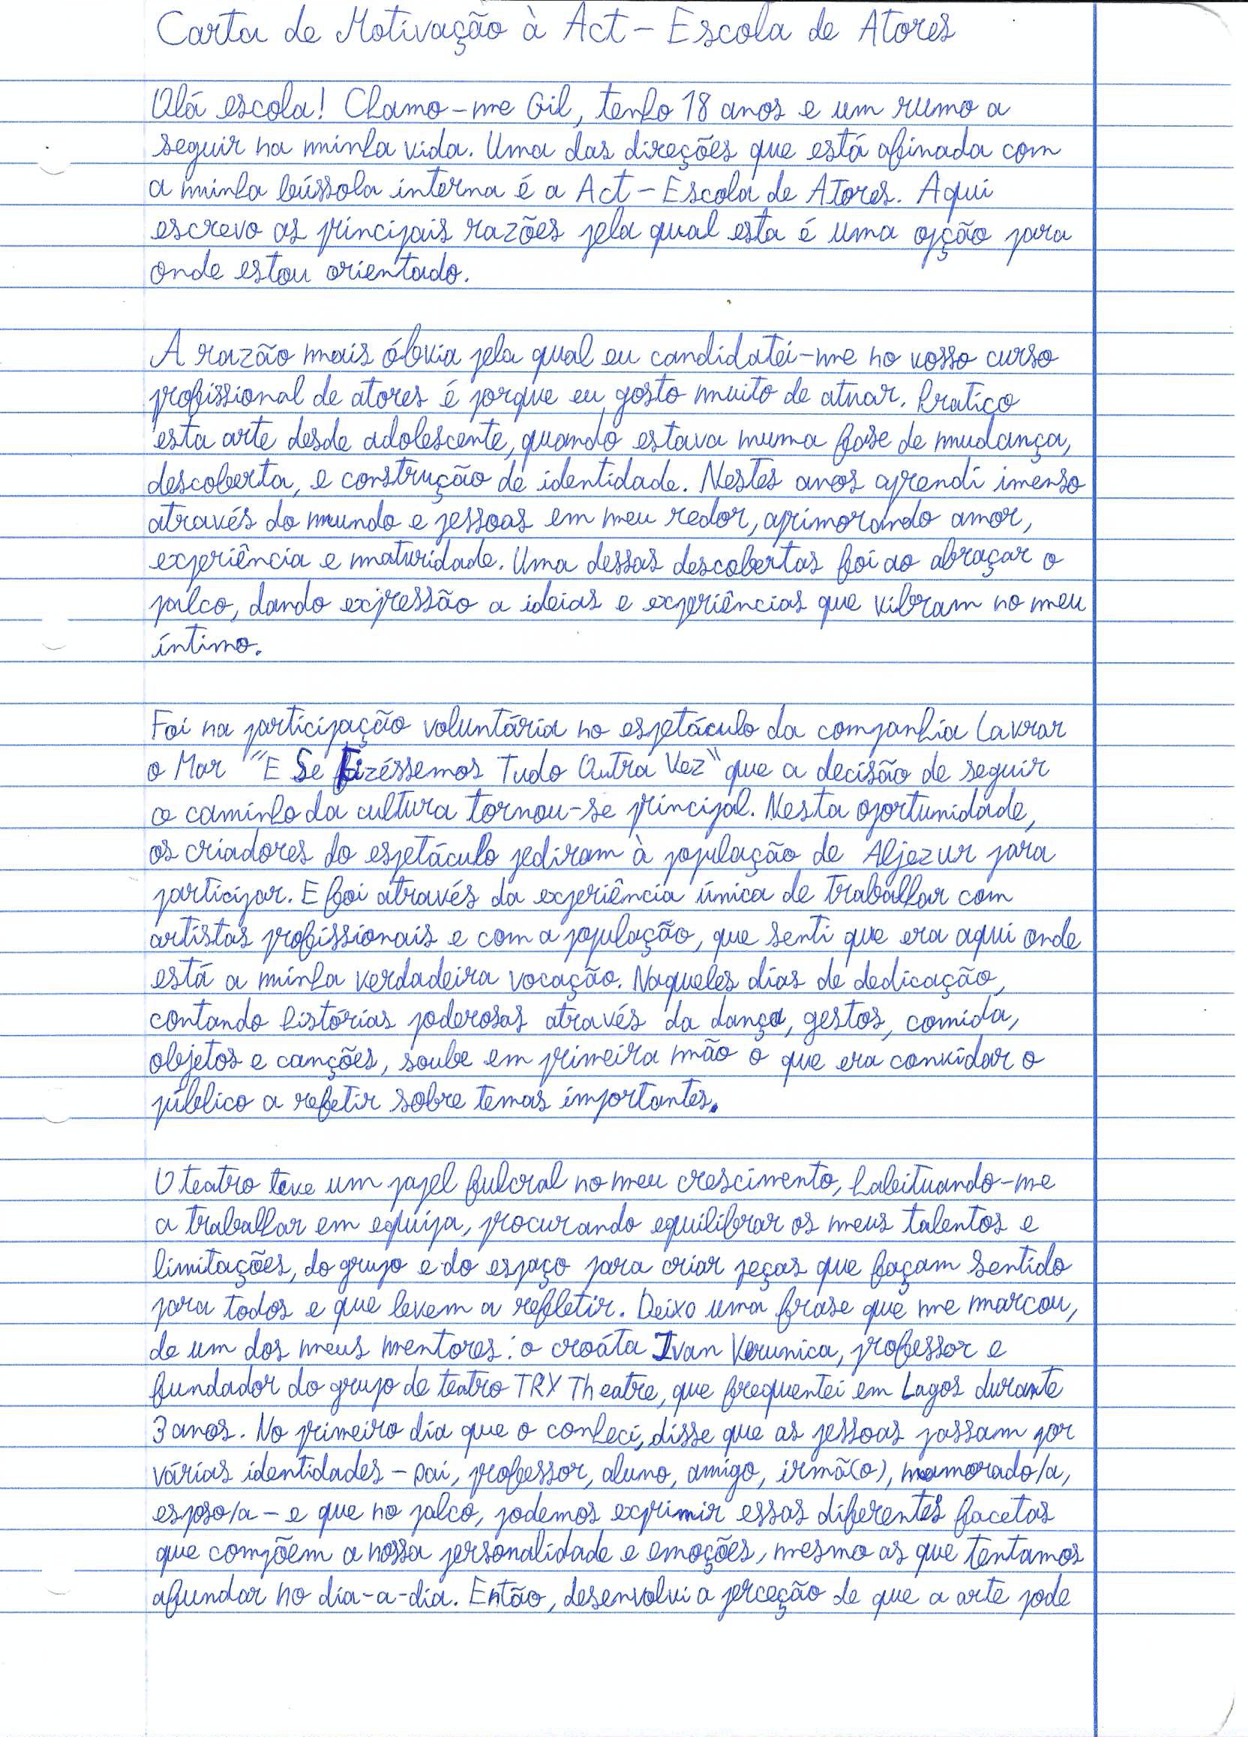 Carta de Motivação à Act - Escola de Atores
Olá escola! Chamo-me Gil, tenho 18 anos e um rumo a
seguir na minha vida. Uma das direções que está afinada com
a minha bússola interna é a Act - Escola de Atores. Aqui
escrevo as principais razões pela qual esta é uma opção para
onde estou orientado.
A razão mais óbvia pela qual eu candidatei-me no vosso curso
profissional de atores é porque eu gosto muito de atuar. Pratico
esta arte desde adolescente, quando estava numa fase de mudança,
descoberta, e construção de identidade. Nestes anos aprendi imenso
através do mundo e pessoas em meu redor, aprimorando amor,
experiência e maturidade. Uma dessas descobertas foi ao abraçar o
palco, dando expressão a ideias e experiências que vibram no meu
íntimo.
Foi na participação voluntária no espetáculo da companhia Lavrar
o Mar "E Se Fizéssemos Tudo Outra Vez" que a decisão de seguir
o caminho da cultura tornou-se principal. Nesta oportunidade,
os criadores do espetáculo pediram à população de Aljezur para
participar. E foi através da experiência única de trabalhar com
artistas profissionais e com a população, que senti que era aqui onde
está a minha verdadeira vocação. Naqueles dias de dedicação,
contando histórias poderosas através da dança, gestos, comida,
objetos e canções, soube em primeira mão o que era convidar o
público a refetir sobre temas importantes.
O teatro teve um papel fulcral no meu crescimento, habituando-me
a trabalhar em equipa, procurando equilibrar os meus talentos e
limitações, do grupo e do espaço para criar peças que façam sentido
para todos e que levem a refletir. Deixo uma frase que me marcou,
de um dos meus mentores: o croáta Ivan Verunica, professor e
fundador do grupo de teatro TRY Theatre, que frequentei em Lagos durante
3 anos. No primeiro dia que o conheci, disse que as pessoas passam por
várias identidades - pai, professor, aluno, amigo, irmã(o), namorado/a,
esposo/a - e que no palco, podemos exprimir essas diferentes facetas
que compõem a nossa personalidade e emoções, mesmo as que tentamos
afundar no dia-a-dia. Então, desenvolvi a perceção de que a arte pode